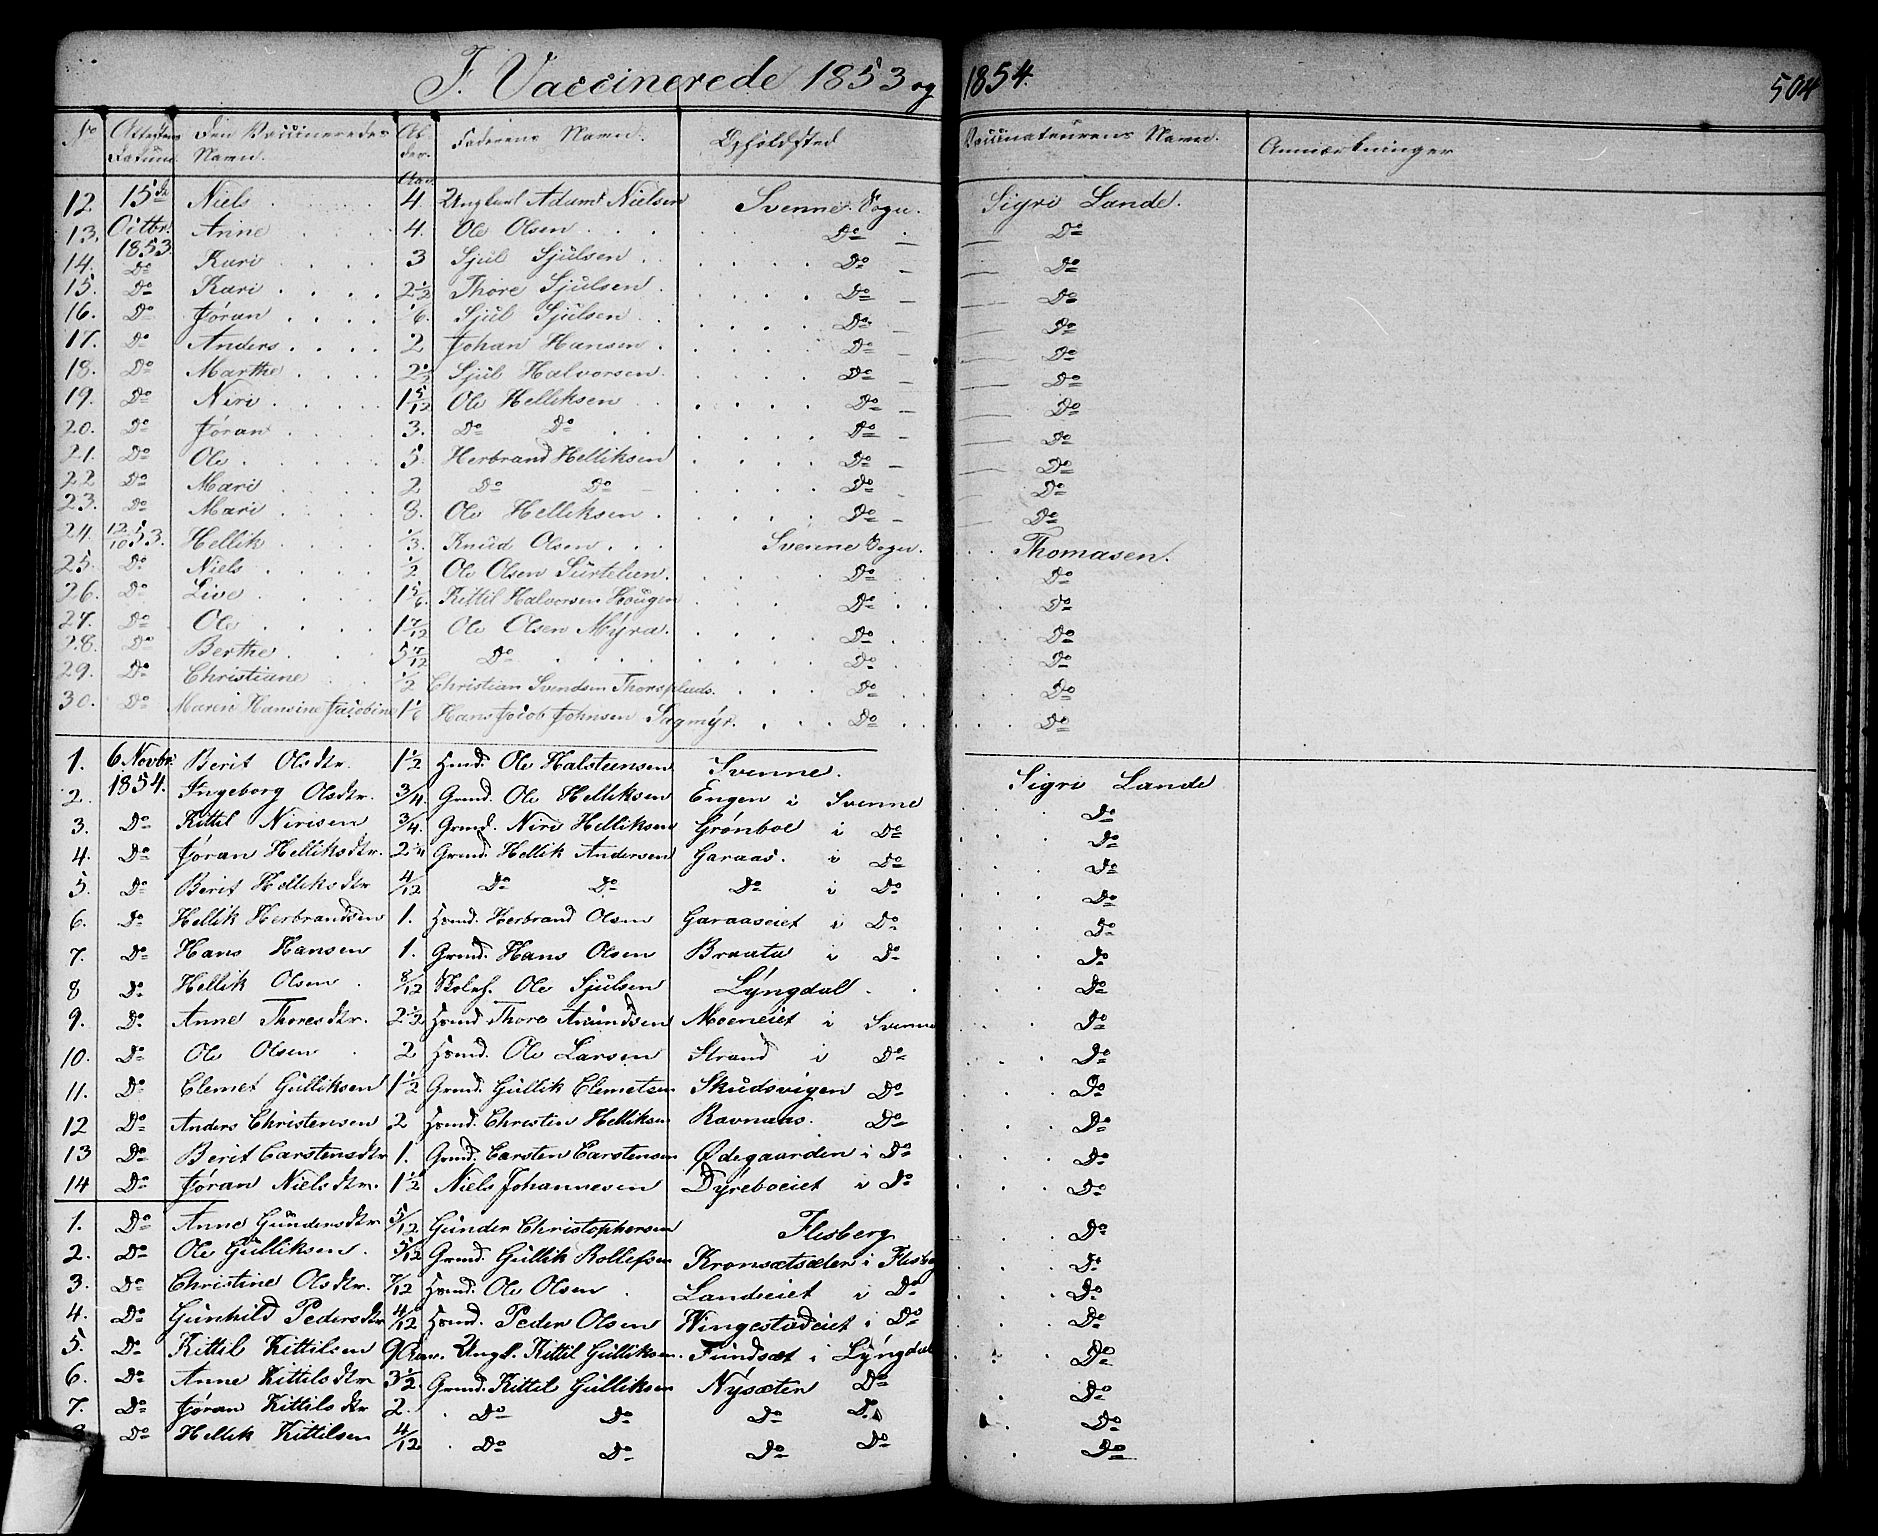 F. Vaccinerede 1853 og 1854. 504
No Attestens Datum. Den Vaccineredes Navn. Alder. Aar. Faderens Navn. Opholdsted Vaccinateurens Navn. Anmærkninger
12 15de Niels 4. Ungkarl Adam Nielsen Svenne Sogn. Sigri Lande.
13. Octbr. Anne 4. Ole Olsen Do Do
1853.
14. Do Kari 3 Sjul Sjulsen Do Do
15. Do Kari 2½ Thore Sjulsen Do Do
16. Do Jøran 1/6. Sjul Sjulsen Do Do
17. Do Anders 2 Johan Hansen Do Do
18. Do Marthe 2½ Sjul Halvorsen Do Do
19. Do Niri 1 5/12 Ole Helliksen Do Do
20. Do Jøran 3. Do Do Do Do
21. Do Ole 5. Herbrand Helliksen Do Do
22 Do Mari 2 Do Do Do Do
23. Do Mari 8. Ole Helliksen Do Do
24. 12/10 53. Hellik 1/3. Knud Olsen Svenne Sogn. Thomasen.
25. Do Niels ½ Ole Olsen Surtelien. Do Do
26. Do Live 1 5/6. Kittil Halvorsen Hougen Do Do
27. Do Ole 1 7/12 Ole Olsen Myra. Do Do
28. Do Berthe 5 7/12 Do Do Do
29. Do Christiane ½ Christian Svendsen Thorsplads. Do Do
30. Do Maren Hansine Jacobine 1 1/6 Hans Jacob Johnsen Sagmyr. Do Do
1. 6 Novbr. Berit Olsdtr. 1½ Hmd. Ole Halsteensen Svenne. Sigri Lande
2. 1854. Ingeborg Olsdtr. 3/4. Grmd. Ole Helliksen Engen i Svenne Do
3. Do Kittil Nirisen 3/4. Grmd. Niri Helliksen Grønboe i Do Do
4. Do Jøran Helliksdtr. 2¼ Grmd. Hellik Andersen Garaas. i Do Do
5. Do Berit Helliksdtr 4/12 Do Do Do i Do Do
6. Do Hellik Herbrandsen 1. Hsmd. Herbrand Olsen Garaaseiet i Do Do
7. Do Hans Hansen 1. Grmd. Hans Olsen Braata i Do Do
8 Do Hellik Olsen 8/12 Ole Sjulsen Lyngdal. Do
9. Do Anne Thoresdtr. 2½ Hsmd. Thore Amundsen Moeneiet i Svenne Do
10. Do Ole Olsen 2 Hsmd. Ole Larsen Strand i Do Do
11. Do Clemet Gulliksen 1½ Grmd. Gullik Clemetsen Skudsvigen Do Do
12 Do Anders Christensen 2 Hsmd. Christen Helliksen Ravnaas. Do Do
13 Do Berit Carstensdtr 1. Grmd. Carsten Carstensen Ødegaarden i Do Do
14 Do Jøran Nielsdtr. 1½ Niels Johannesen Dyreboeiet i Do Do
1. Do Anne Gundersdtr 5/12 Gunder Christophersen Flesberg Do
2. Do Ole Gulliksen. 5/12 Grmd. Gullik Rollefsen Kronsætsæter i Flesberg Do
3. Do Christine Olsdtr. 7/12 Hsmd. Ole Olsen Landeeiet i Do Do
4. Do Gunhild Pedersdtr 4/12 Hsmd. Peder Olsen Wingestadeiet i Do Do
5. Do Kittil Kittilsen 9 Aar. Ungk. Kittil Gulliksen. Fundsæt i Lyngdal Do
6. Do Anne Kittilsdtr. 3½. Grmd. Kittil Gulliksen Nysæter Do Do
7. Do Jøran Kittilsdtr 2. Do Do Do Do Do
8. Do Hellik Kittilsen 4/12 Do Do Do Do Do